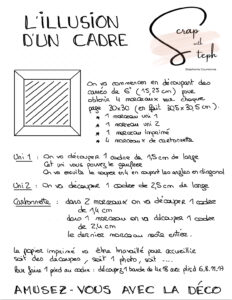 L'ILLUSION
D'UN CADRE
Scrap
with
Steph
On va commencer en découpant des
carrés de 6" (15,23 cm) pour
obtenir 4 morceaux sur chaque
page 30x30 (en fait 30,5 x 30,5 cm).
* 1 morceau uni 1
* 1 morceau uni 2
* 1 morceau imprimé
* 4 morceaux de cartonnette
Uni 1 : On va découper 1 cadre de 1,5 cm de large
Cet uni vous pouvez le gaufrer
On va ensuite le couper en 4 en coupant les angles en diagonal
Uni 2 : On va découper 1 cadre de 2,5 cm de large.
Cartonnette : dans 2 morceaux on va découper 1 cadre
de 1,4 cm
dans 1 morceau on va découper 1 cadre
de 2,4 cm
le dernier morceau reste entier.
Le papier imprimé va être travaillé pour accueillir
soit des découpes, soit 1 photo, soit ....
Pour faire 1 pied au cadre : découpez 1 bande de 4x18 avec plis à 6, 8, 11, 17
AMUSEZ-VOUS AVEC LA DÉCO